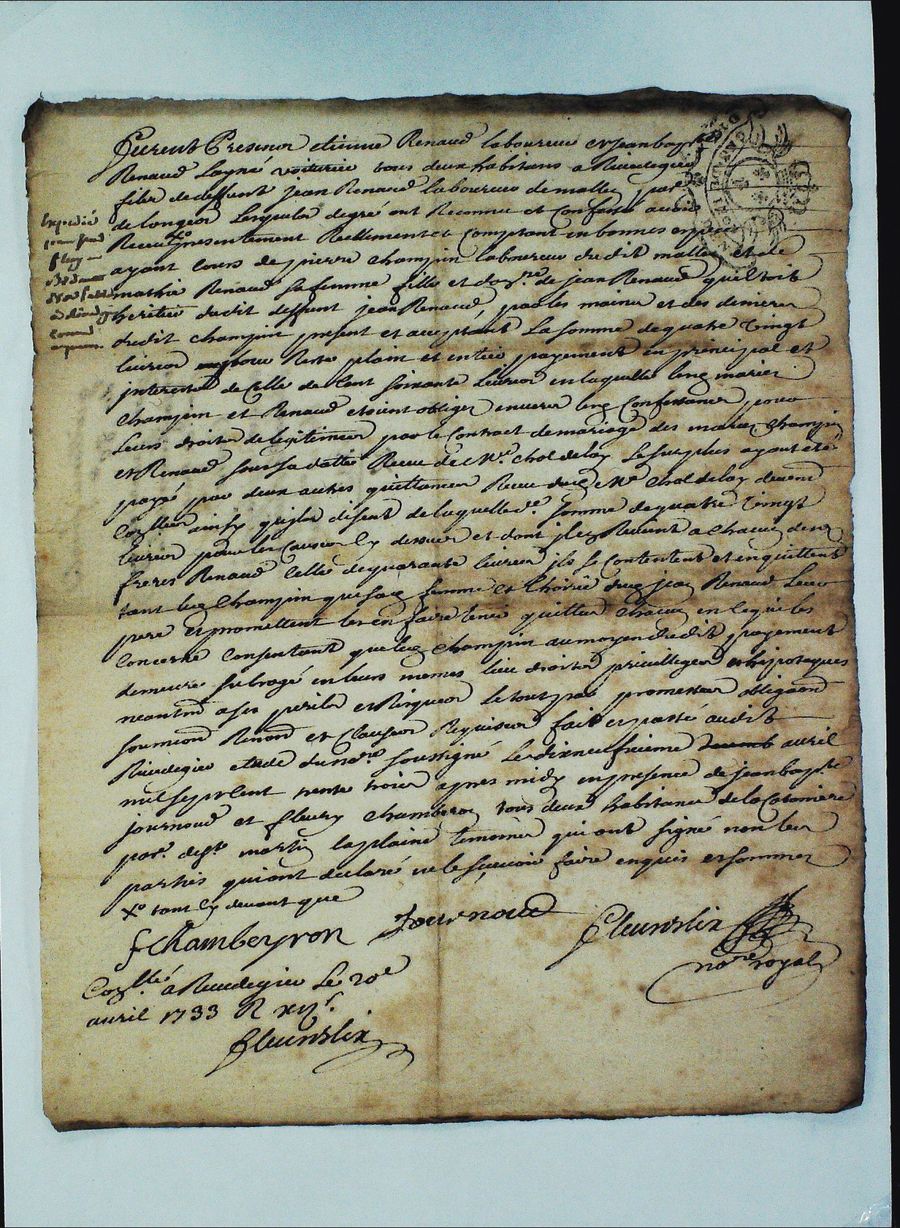 furent Presens etienne Renaud laboureur et jean bapt.
Renaud Layné voiturié tous deux habitans a Rivedegier
fils de deffunt jean Renaud Laboureur de mallev par.
de longeon Lesquels de gré ont Reconnu et Confessé avoir
Receu Xo presentement Reellement et Comptant en bonnes especes
ayant Cours de pierre Champin laboureur dudit mallev et de
mathie Renaud sa femme fille et de jean Renaud qu'Etoit
heritier dudit deffunt jean Renaud, par les mains et des deniers
dudit champin present et acceptant La somme de quatre vingt
livres pour Reste plain et entier payement en principal et
interests de Celle de Cent soixante livres en laquelle lesd mariés
Champin et Renaud etoient obligés envers lesd Confessans pour
Leurs droits de legitimes par le Contract de mariage des mariés Champin
et Renaud sous sa datte Receu de Me Chol delay Le surplus ayant eté
payé par deux autres quittances Receu dud Me Chol delay devend
Conllées ainsy qu'ils disent de laquelle de somme de quatre vingt
livres pour les Causes Cy dessus et dont il en Revient a Chacun desd
freres Renaud Celle de quarante livres ils se Contentent et en quittent
tant led Champin que sad femme et L'hoirie dud jean Renaud Leur
pere et promettent les en faire tenir quittes Chacun en Ce qui les
Concerne Consentant que led Champin au moyen dudit payement
demeure subrogé en leurs memes lieu droits privilleges et hipoteques
neantm a ses perils et Risques Le tout par promesses obligaons
soumions Renons et Clauses Requises fait et passé audit
Rivedegier etude du no.re soussigné Le dixneufvieme avril
mil sept Cent trente trois apres midy en presence de jean bapte
journoud et fleury chambeyron tous deux habitans de la Cotoniere
par. de st. martin laplaine temoins qui ont signé non les
parties qui ont declaré ne le sçavoir faire enquis et sommés
Xo tant Cy devant que
fChambeyron Journoud fleurdelix
no.re royal
Conllé a Rivedegier Le 20e
avril 1733 R xijs.
fleurdelix
Expedié
pour